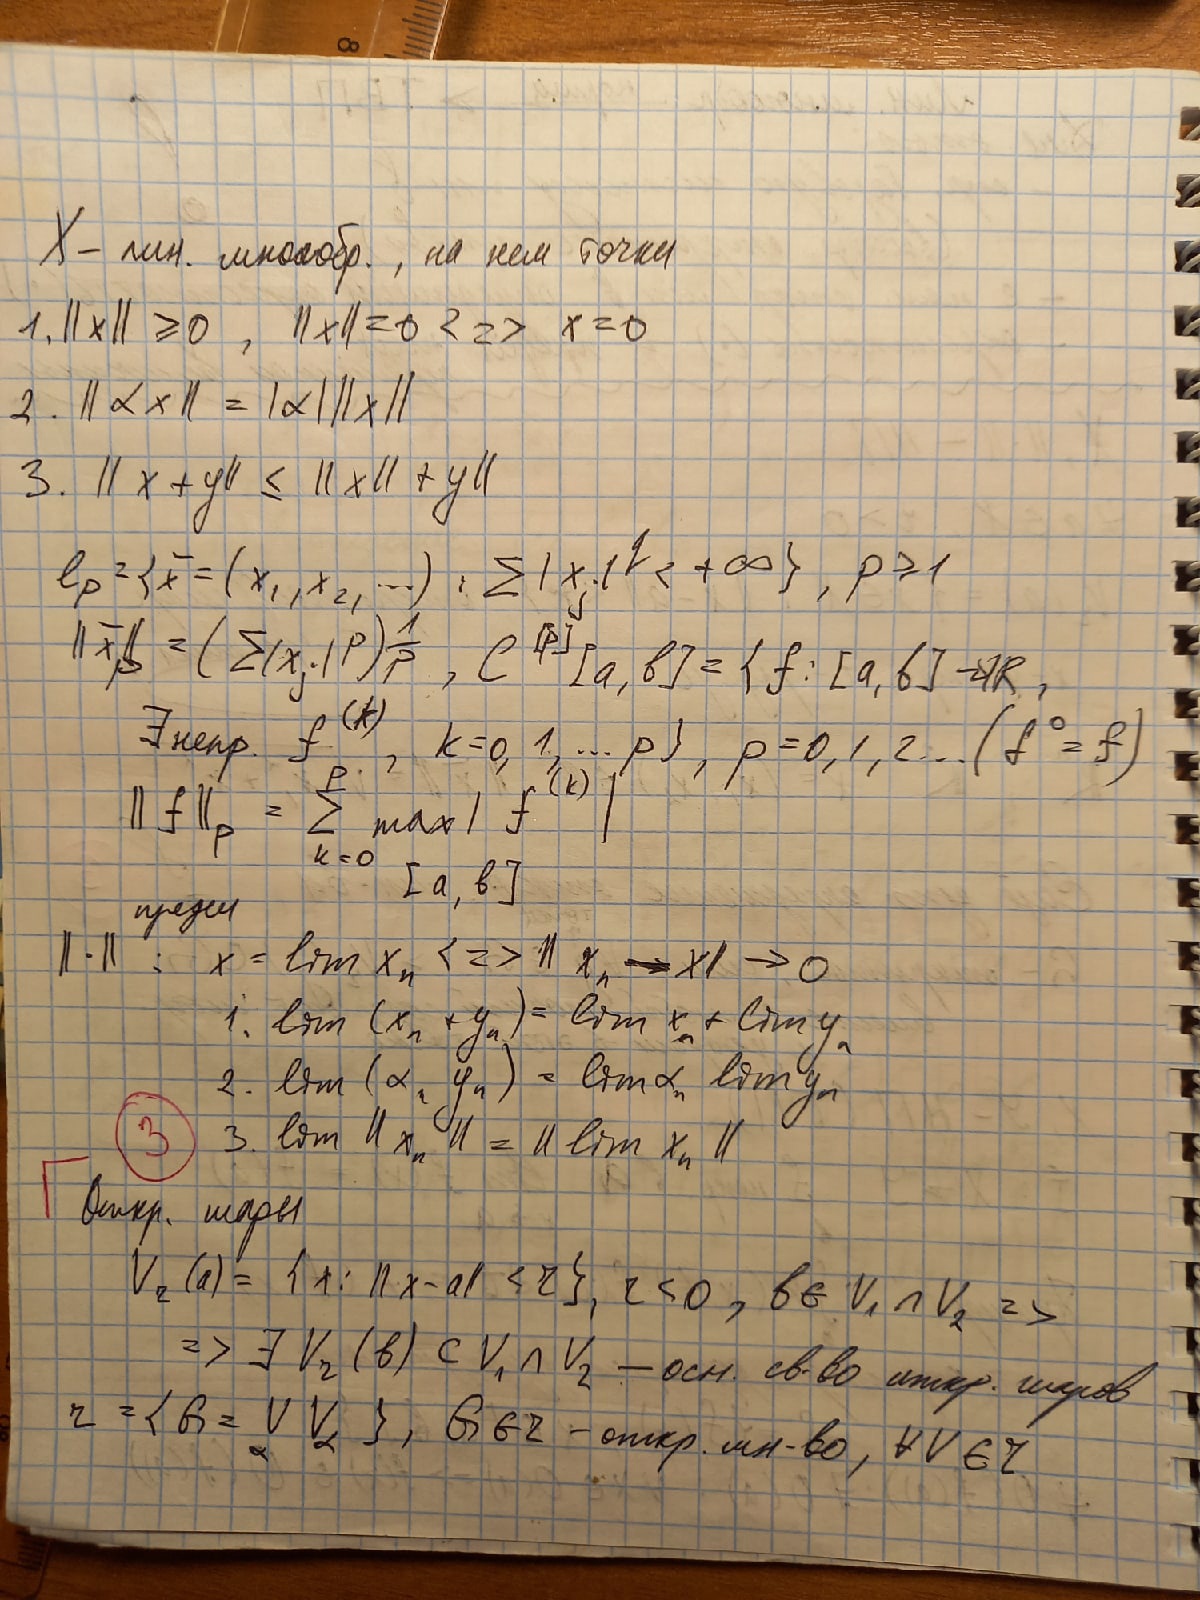 X – лин. многообр., на нем точки
1. ||x|| ≥ 0, ||x|| = 0 <=> x = 0
2. ||αx|| = |α| ||x||
3. ||x + y|| ≤ ||x|| + y||
lₚ = {x̄ = (x₁, x₂, ...) : Σ|xⱼ|^p < +∞}, p ≥ 1
||x̄||ₚ = (Σ|xⱼ|^p)^(1/p), C^[p][a, b] = {f : [a, b] → ℝ,
∃ непр. f^(k), k = 0, 1, ... p}, p = 0, 1, 2 ... (f⁰ = f)
||f||ₚ = Σ_{k=0}^{p} max | f^(k) |
[a, b]
предел
||·|| : x = lim xₙ <=> || xₙ – x|| → 0
1. lim (xₙ + yₙ) = lim xₙ + lim yₙ
2. lim (αₙ yₙ) = lim αₙ lim yₙ
3
3. lim ||xₙ|| = || lim xₙ ||
Откр. шары
V_r (a) = {x : ||x - a|| < r}, r < 0, b ∈ V₁ ∩ V₂ =>
=> ∃ V_r (b) ⊂ V₁ ∩ V₂ – осн. св-во откр. шаров
τ = {G = ∪_α V_α}, G ∈ τ – откр. мн-во, ∀V ∈ τ
8